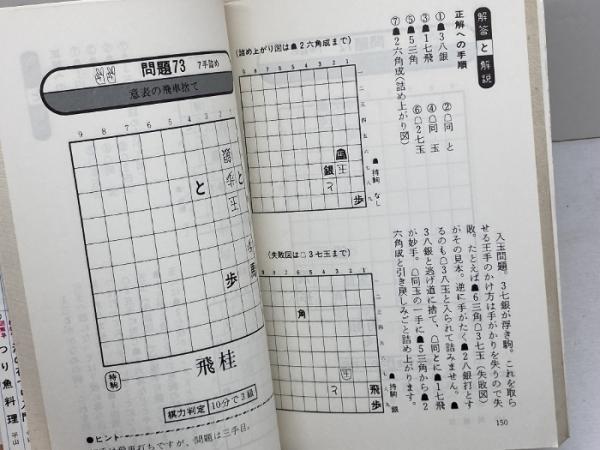 解答と解説
正解への手順
①☗3八銀 ②☖同と
③☗1七飛 ④☖同玉
⑤☗5三角 ⑥☖2七玉
⑦☗2六角成(詰め上がり図)
入玉問題。3七銀が浮き駒。これを取ら
せる王手のかけ方は手がかりを失うので失
敗。たとえば☗6三角☖3七玉(失敗図)
がその見本。逆に手がたく☗2八銀打とす
るのも☖3八玉と入られて詰みません。☗
3八銀と逃げ道に捨て、☖同とに☗1七飛
が妙手。☖同玉の一手に☗5三角から☗2
六角成と引き戻しみごと詰め上がります。
150
(詰め上がり図は☗2六角成まで)
☗持駒 なし
銀
玉
歩
(失敗図は☖3七玉まで)
角
玉
飛
歩
☗持駒 銀
問題73
7手詰め
意表の飛車捨て
9 8 7 6 5 4 3 2 1
銀
と
歩
と
玉
歩
持駒
飛桂
棋力判定
10分で3級
●ヒント
飛車打ちですが、問題は三手目。
つり魚料理